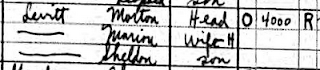 Levitt Molton Head O 4000 R
Marion Wife H
Sheldon son